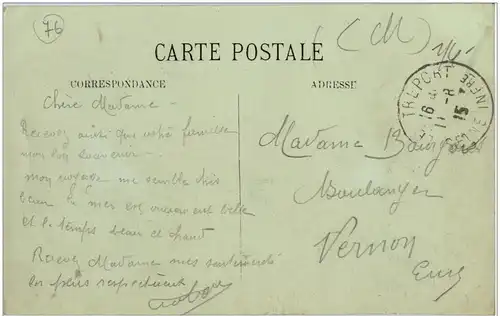 76
(M)
CARTE POSTALE
CORRESPONDANCE
ADRESSE
TREPORT
16
11 -8
15
SEINE INFRE
Chère Madame -
Recevez ainsi que votre famille
mon bon souvenir -
mon voyage me semble très
beau la mer est vraiment belle
et le temps beau et chaud
Recevez Madame mes sentiments
les plus respectueux
Madame
Boulanger
Vernon
Eure